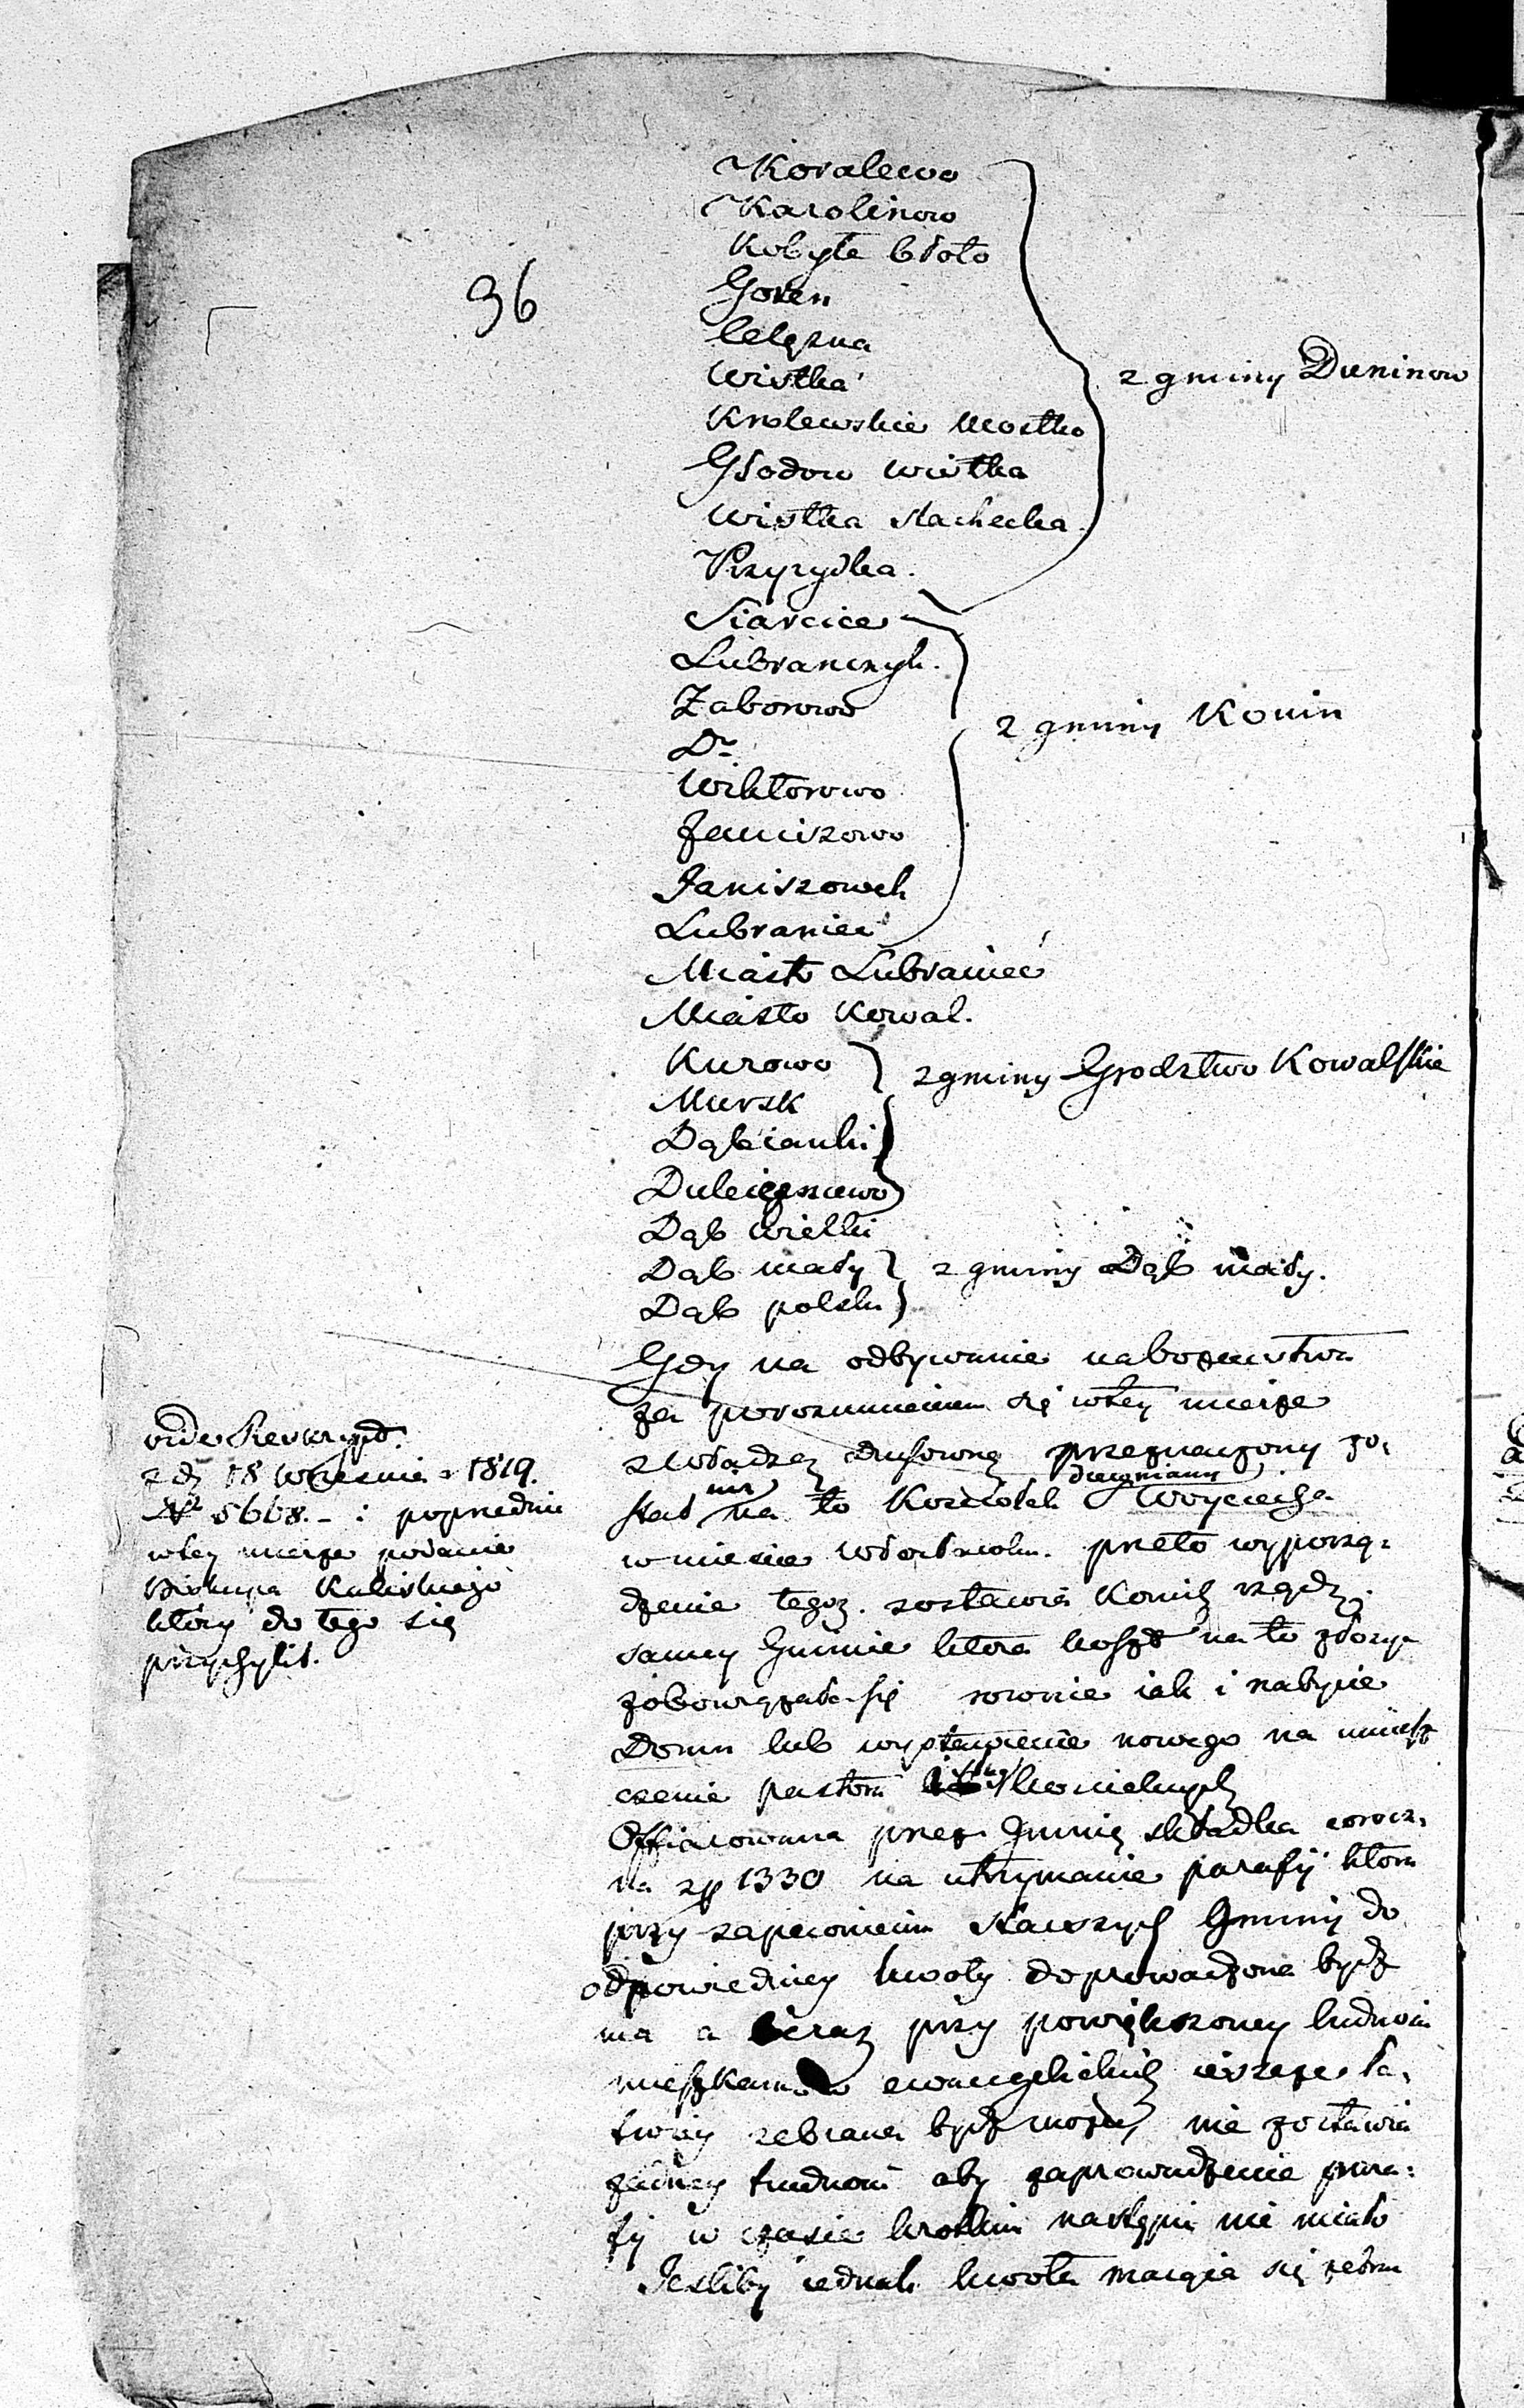 96
Kovalewo
Karolinowo
Kobyłe błoto
Goren
Celęzna
Wistka
Krolewskie
Głodow wistka
Wistka slachecka
Skarcice
Lubranczyk.
Zaborowo
Do
Wiktorowo
Janiszowo
Janiszowek
Lubranieć
Miasto Lubranieć
Miasto Kowal.
Kurowo
Mursk
Dąbianki
Dąb wielki
Dąb mały
Dąb polski
z gminy Duninow
z gminy Konin
z gminy Grodztwo Kowalskie
z gminy Dąb mały.
vide Reskrypt.
z dj 18 Wrzesnia 1819.
No 5668. - i poprzednie
w tey mierze podanie
Biskupa Kaliskiego
ktory do tego się
przychylił.
Gdy na odbywanie nabozenstwa
za porozumieniem się w tey mierze
z władzą duchowną przeznaczony zo,
stał na to Kosciołek Woyciecha
w miescie przeto wyporzą:
dzenie zostawia
samey Gminie ktora koszt na to złozyc
zobowiązała się rownie iak i nabycie
Domu lub wystawienie nowego na umiesz
czenie pastora koscielnych
Offiarowana przez Gminę składka corocz,
na zp 1330 na utrzymanie parafij ktora
przy zapewnieniu Gminy do
odpowiedniey kwoty doprowadzona bydz
ma a teraz przy powiększoney ludnosci
mieszkancow ewangelickich ieszcze ła,
twiey zebrana bydz moze, nie zostawia
zadney trudnosci aby zaprowadzenie para:
fij w czasie krotkim nastąpic nie miało
Jesliby iednak kwota maiąca się zebrac